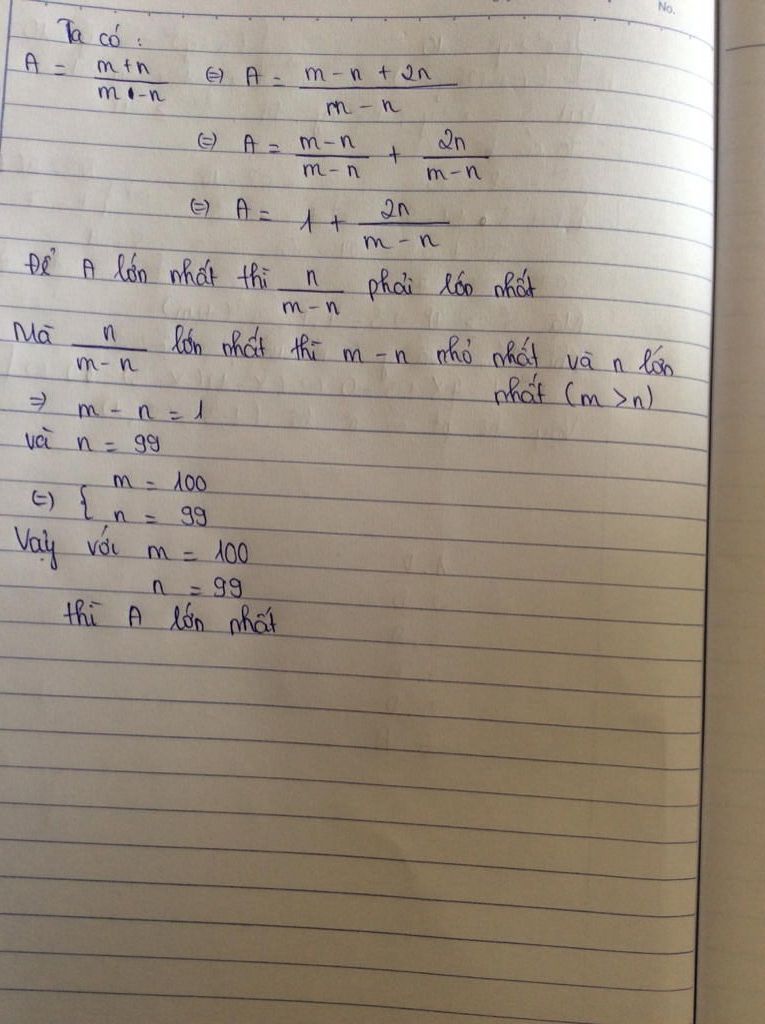 No.
Ta có :
A = \frac{m+n}{m-n} ⇔ A = \frac{m-n+2n}{m-n}
⇔ A = \frac{m-n}{m-n} + \frac{2n}{m-n}
⇔ A = 1 + \frac{2n}{m-n}
Để A lớn nhất thì \frac{n}{m-n} phải lớn nhất
Mà \frac{n}{m-n} lớn nhất thì m-n nhỏ nhất và n lớn
nhất (m > n)
⇒ m - n = 1
và n = 99
⇔ { m = 100
n = 99
Vậy với m = 100
n = 99
thì A lớn nhất